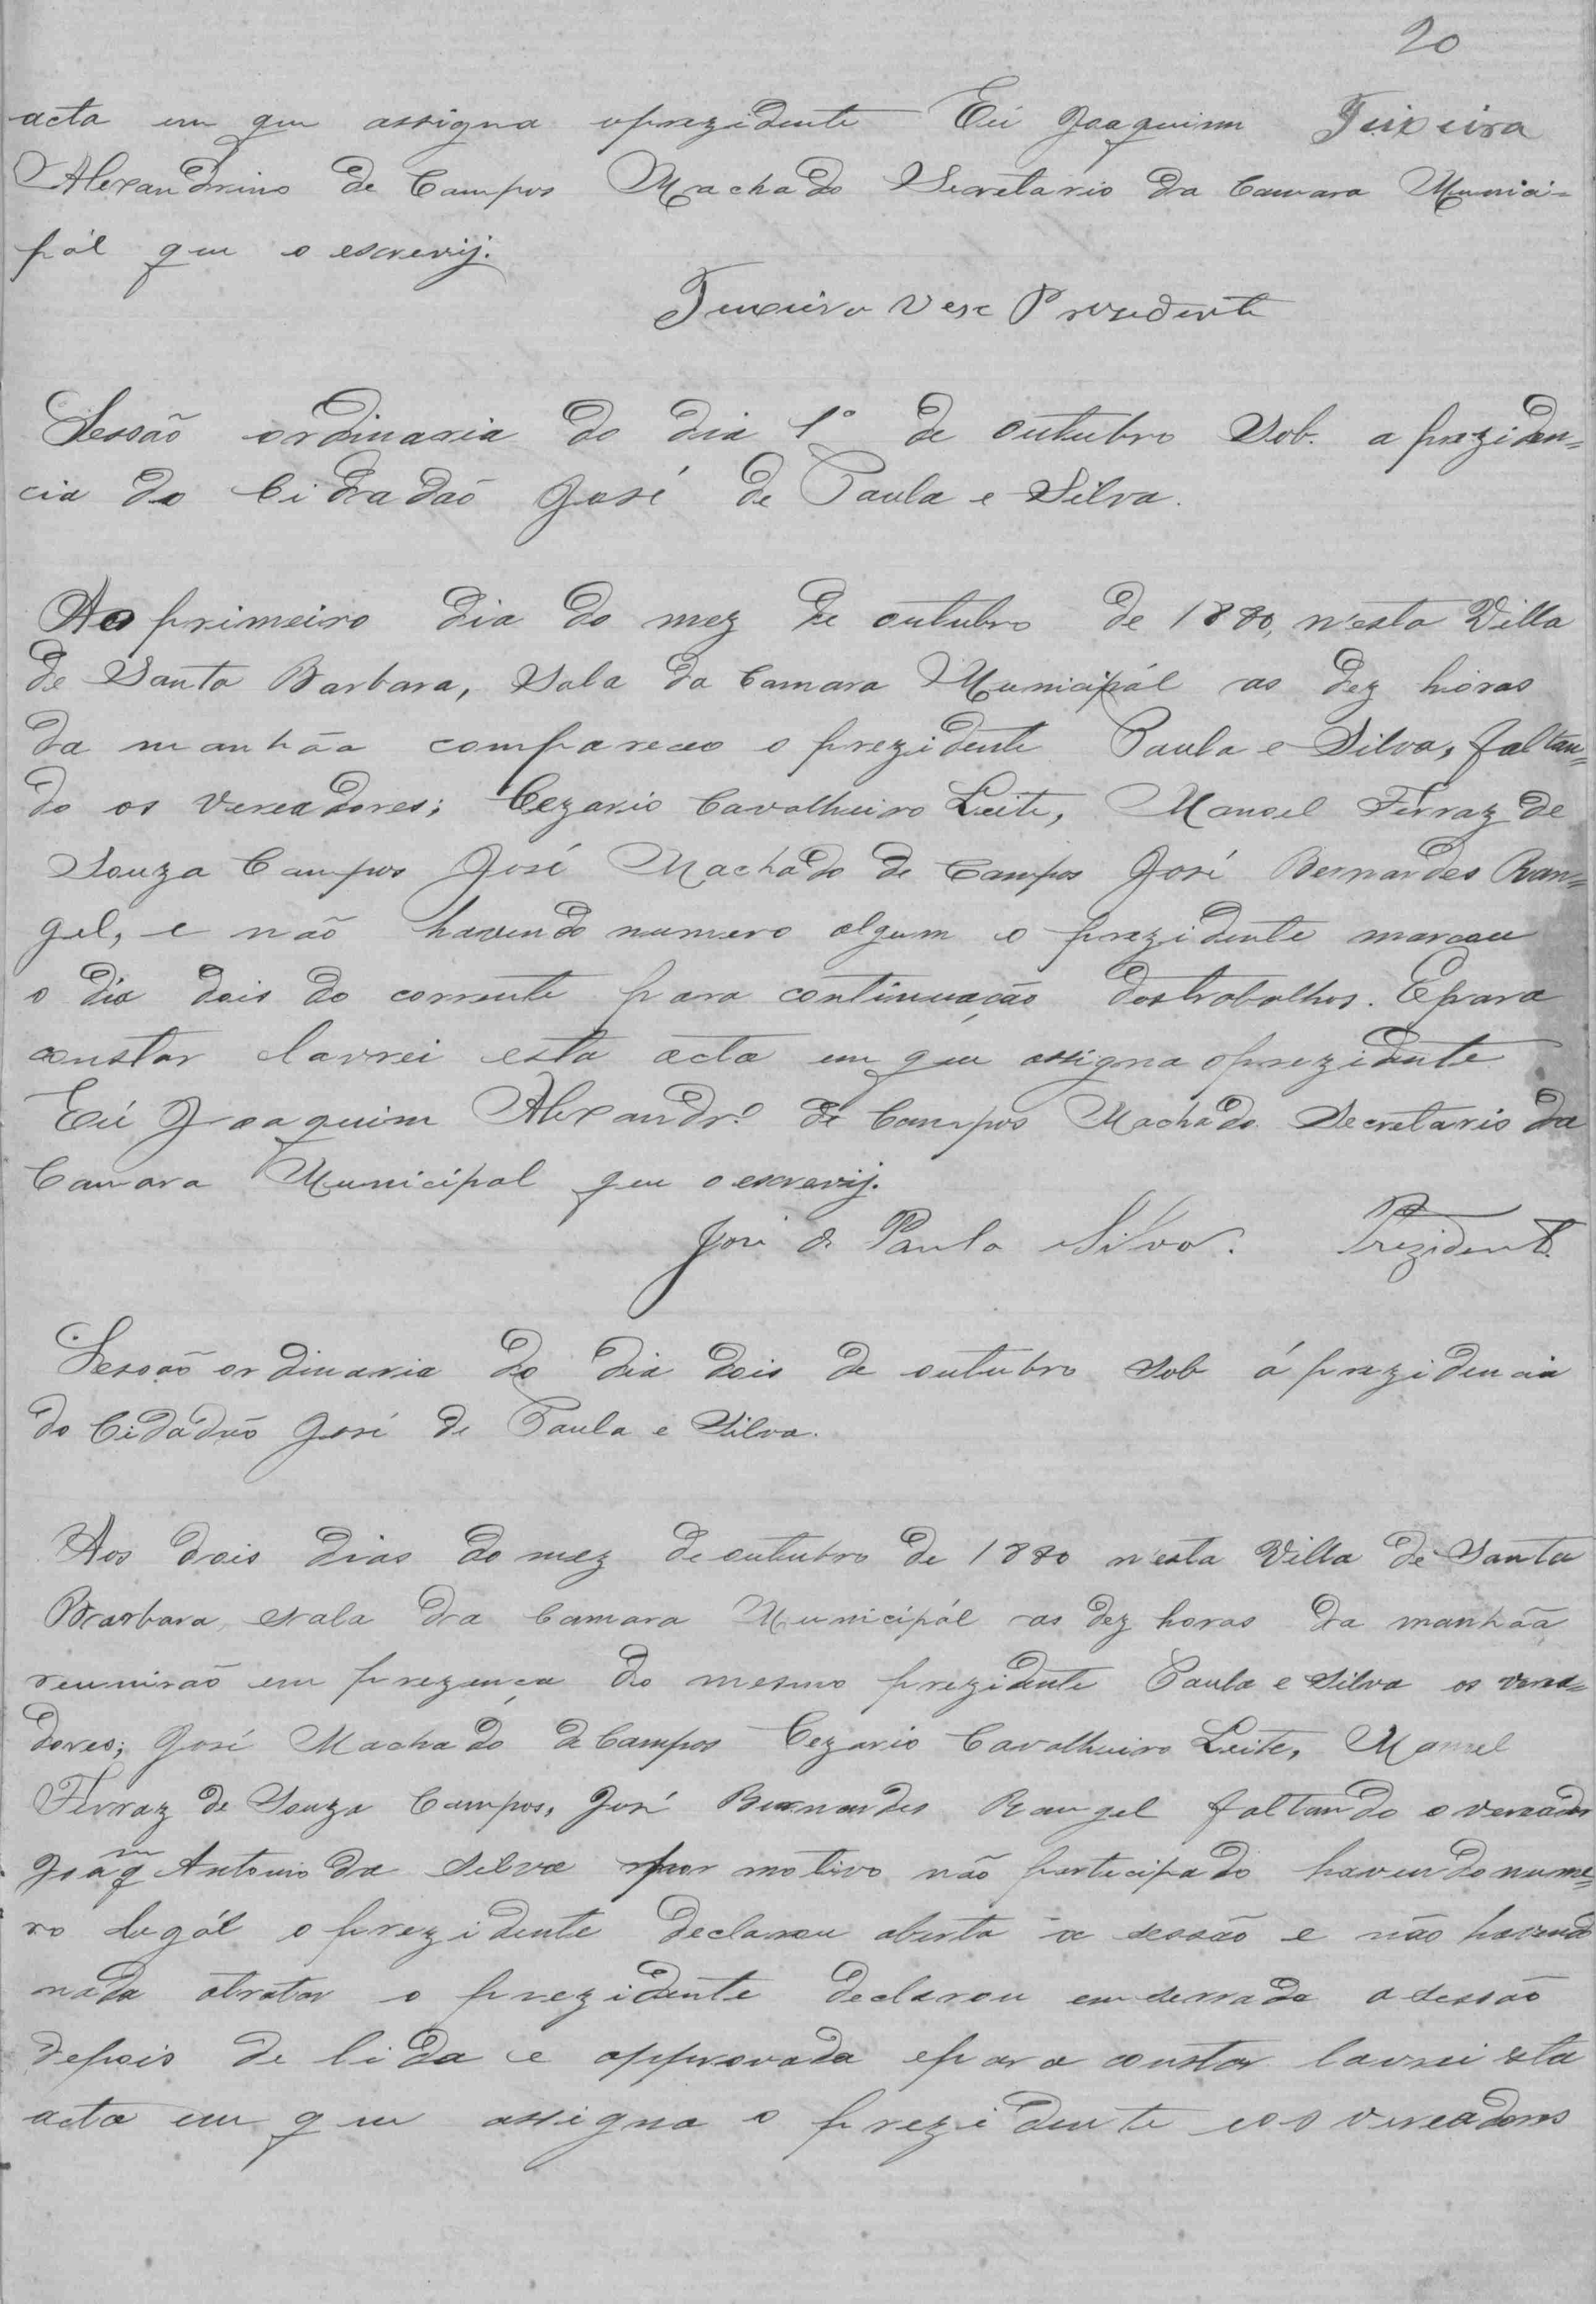 20
acta em que assigna oprezidente Eú Joaquim Teixeira
Alexandrino de Campos Machado Secretario da Camara Munici-
pál que o escrevij.
Teixeira Vese Prezidente
Sessão ordinaria do dia 1º de outubro Sob. a preziden-
cia do Cidadão José de Paula e Silva.
Ao primeiro dia do mez de outubro de 1880, n'esta Villa
de Santa Barbara, Sala da Camara Municipál as dez horas
da manhãa compareceo o prezidente Paula e Silva, faltan-
do os Vereadores; Cezario Cavalheiro Leite, Manoel Ferraz de
Souza Campos José Machado de Campos José Bernardes Ran-
gel, e não havendo numero algum o prezidente marcou
o dia dois do corrente para continuação dostrabalhos. Epara
constar lavrei esta acta em que assigna oprezidente
Eú Joaquim Alexandrº de Campos Machado Secretario da
Camara Municipal que oescrevij.
José de Paula e Silva. Prezidente
Sessão ordinaria do dia dois de outubro Sob á prezidencia
do Cidadão José de Paula e Silva.
Aos dois dias do mez de outubro de 1880 n'esta Villa de Santa
Barbara, sala da Camara Municipál as dez horas da manhãa
reunirão em prezença do mesmo prezidente Paula e Silva os verea-
dores; José Machado de Campos Cezario Cavalheiro Leite, Manoel
Ferraz de Souza Campos, José Bernardes Rangel faltando o vereador
Joaqm Antonio da Silva por motivo não participado havendo nume-
ro legál o prezidente declarou aberta a sessão e não havendo
nada atratar o prezidente declarou emserrada a sessão
depois de lida e approvada epara constar lavrei esta
acta em que assigna o prezidente eos vereadores